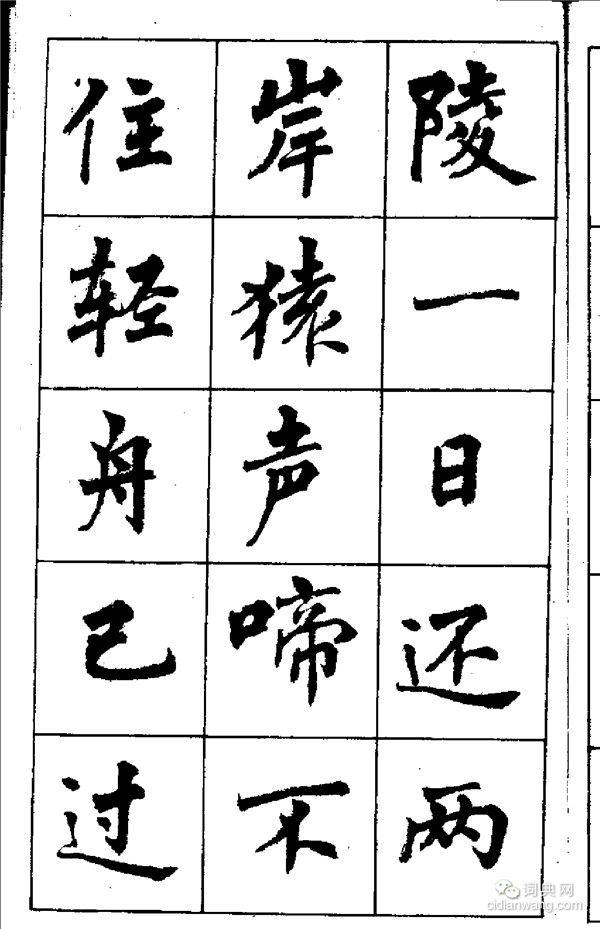 陵一日还两
岸猿声啼不
住轻舟已过
词典网
cidianwang.com